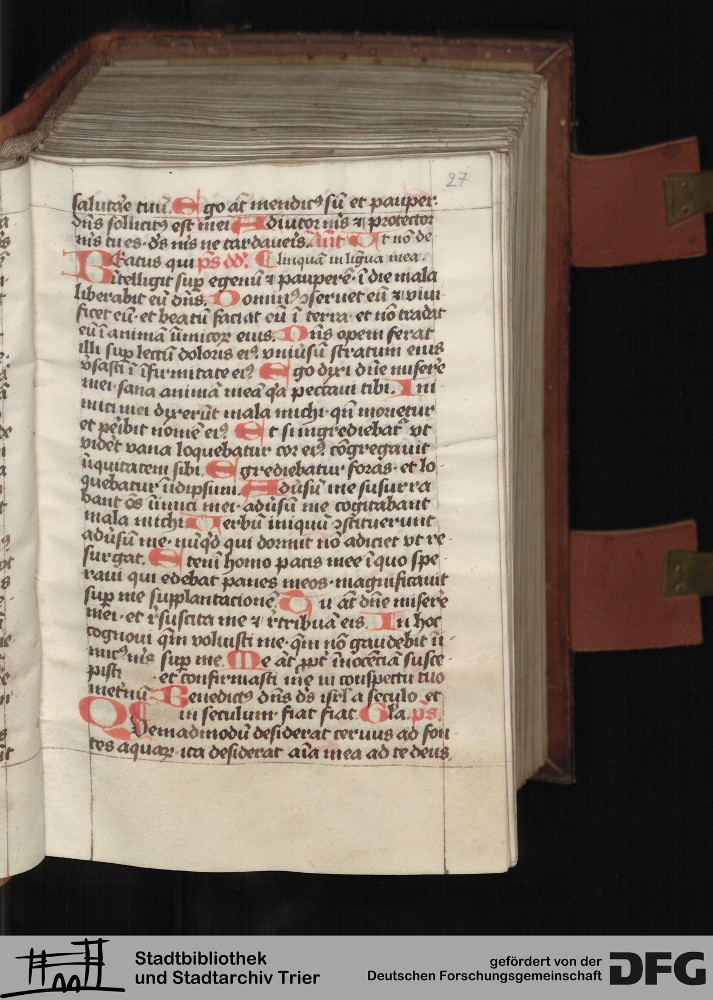 27
salutar̄e tuū. Ego aūt mendicꝰ sū et pauper·
dn̄s sollicitꝰ est mei Adiutor mꝰs ⁊ protector
mꝰs tu es· dꝰs mꝰs ne tardaueris. Ant̄ Ut nō de
BEatus qui ps̄ dd̄. linquā in ligua mea.
ītelligit sup̄ egenū ⁊ pauperē· ī die mala
liberabit eū dn̄s. Dominꝰ ꝯseruet eū ⁊ viui
ficet eū· et beatū faciat eū ī terra· et nō tradat
eū ī animā īimicoꝝ eius. Dn̄s opem ferat
illi sup̄ lectū doloris eiꝰ· vniūsū stratum eius
v̄sasti ī īfirmitate eiꝰ Ego dixi dn̄e misere
mei· sana animā meā q̄a peccaui tibi. Ini
mici mei dixerūt mala michi· qn̄ morietur
et peribit nomē eiꝰ. Et si ingrediebat᷑ vt
vidēt vana loquebatur cor eiꝰ cōgregauit
īiquitatem sibi. Egrediebatur foras· et lo
quebatur īidipsum. Adūsū me susurra
bant oēs īimici mei· adūsū me cogitabant
mala michi Verbū iniquū ꝯstituerunt
adūsū me· nūqd̄ qui dormit nō adiciet vt re
surgat. Etenī homo pacis mee ī quo spe
raui qui edebat panes meos· magnificauit
sup̄ me supplantacionē. Tu aūt dn̄e misere
mei· et r̄suscita me ⁊ r̄tribuā eis. In hoc
cognoui qm̄ voluisti me· qm̄ nō gaudebit ī
micꝰ mꝰs sup̄ me. Me aūt ꝓpt̄ īnocēciā susce
pisti et confirmasti me in conspectu tuo
īnet̄nū Benedictꝰ dn̄s dꝰs isrl̄ a seculo et
in seculum· fiat fiat. Gl̄a. ps̄.
QUemadmodū desiderat ceruus ad fon
tes aquaꝝ· ita desiderat aīa mea ad te deus.
Stadtbibliothek
und Stadtarchiv Trier
gefördert von der
Deutschen Forschungsgemeinschaft DFG